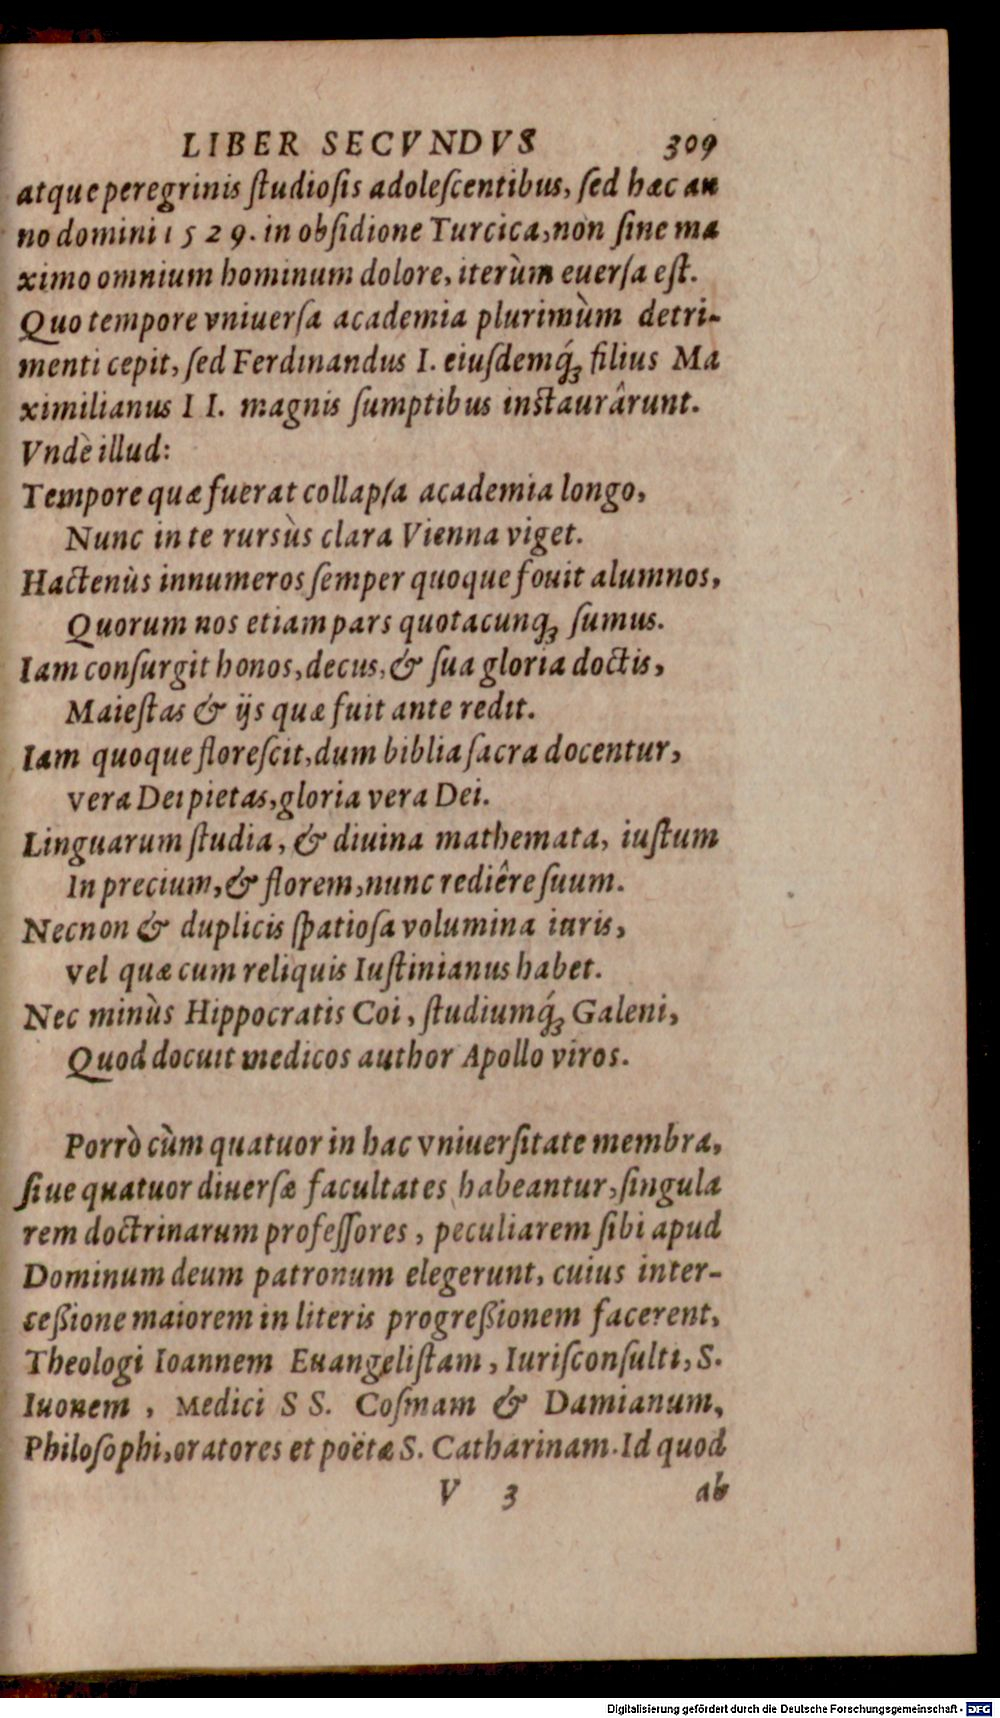 LIBER SECVNDVS 309
atque peregrinis ſtudioſis adoleſcentibus, ſed hæc an
no domini 1529. in obſidione Turcica, non ſine ma
ximo omnium hominum dolore, iterùm euerſa eſt.
Quo tempore vniuerſa academia plurimùm detri-
menti cepit, ſed Ferdinandus I. eiuſdemq́ꝫ filius Ma
ximilianus II. magnis ſumptibus inſtaurârunt.
Vndè illud:
Tempore quæ fuerat collapſa academia longo,
Nunc in te rursùs clara Vienna viget.
Hactenùs innumeros ſemper quoque fouit alumnos,
Quorum nos etiam pars quotacunqꝫ ſumus.
Iam conſurgit honos, decus, & ſua gloria doctis,
Maieſtas & ijs quæ fuit ante redit.
Iam quoque floreſcit, dum biblia ſacra docentur,
vera Dei pietas, gloria vera Dei.
Linguarum ſtudia, & diuina mathemata, iuſtum
In precium, & florem, nunc rediêre ſuum.
Necnon & duplicis ſpatioſa volumina iuris,
vel quæ cum reliquis Iuſtinianus habet.
Nec minùs Hippocratis Coi, ſtudiumq́ꝫ Galeni,
Quod docuit medicos author Apollo viros.
Porrò cùm quatuor in hac vniuerſitate membra,
ſiue quatuor diuerſæ facultates habeantur, ſingula
rem doctrinarum profeſſores, peculiarem ſibi apud
Dominum deum patronum elegerunt, cuius inter-
ceßione maiorem in literis progreßionem facerent,
Theologi Ioannem Euangeliſtam, Iuriſconſulti, S.
Iuonem, Medici SS. Coſmam & Damianum,
Philoſophi, oratores et poëtæ S. Catharinam. Id quod
V 3 ab
Digitalisierung gefördert durch die Deutsche Forschungsgemeinschaft - DFG